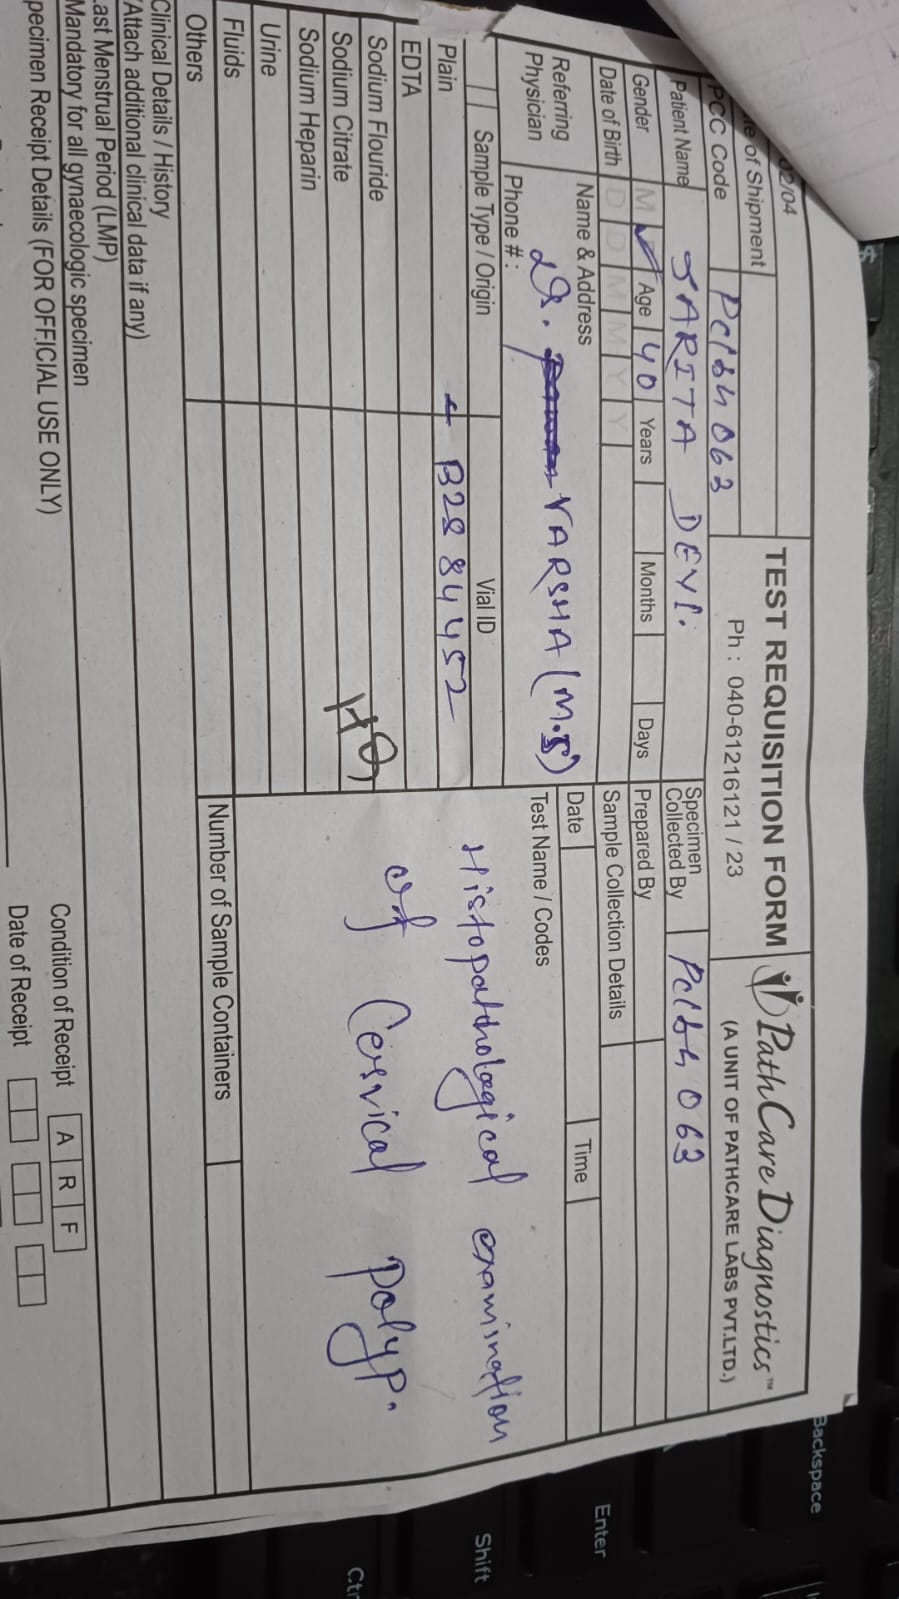 02/04
te of Shipment
TEST REQUISITION FORM
Ph : 040-61216121 / 23
PathCare Diagnostics™
(A UNIT OF PATHCARE LABS PVT.LTD.)
PCC Code Pclbh 063
Patient Name SARITA DEVI.
Specimen Collected By Pclbh 063
Gender M ✓ Age 40 Years Months Days
Prepared By
Date of Birth D D M M Y Y
Sample Collection Details
Referring Physician
Name & Address
Dr. VARSHA (M.S)
Phone # :
Date Time
Test Name / Codes
Histopathological examination
of Cervical polyp.
Sample Type / Origin Vial ID
Plain B2884452
EDTA
Sodium Flouride
Sodium Citrate
Sodium Heparin
Urine
Fluids
Others
Number of Sample Containers
Clinical Details / History
Attach additional clinical data if any)
ast Menstrual Period (LMP)
Mandatory for all gynaecologic specimen
pecimen Receipt Details (FOR OFFICIAL USE ONLY)
Condition of Receipt A R F
Date of Receipt
Backspace
Enter
Shift
Ctr